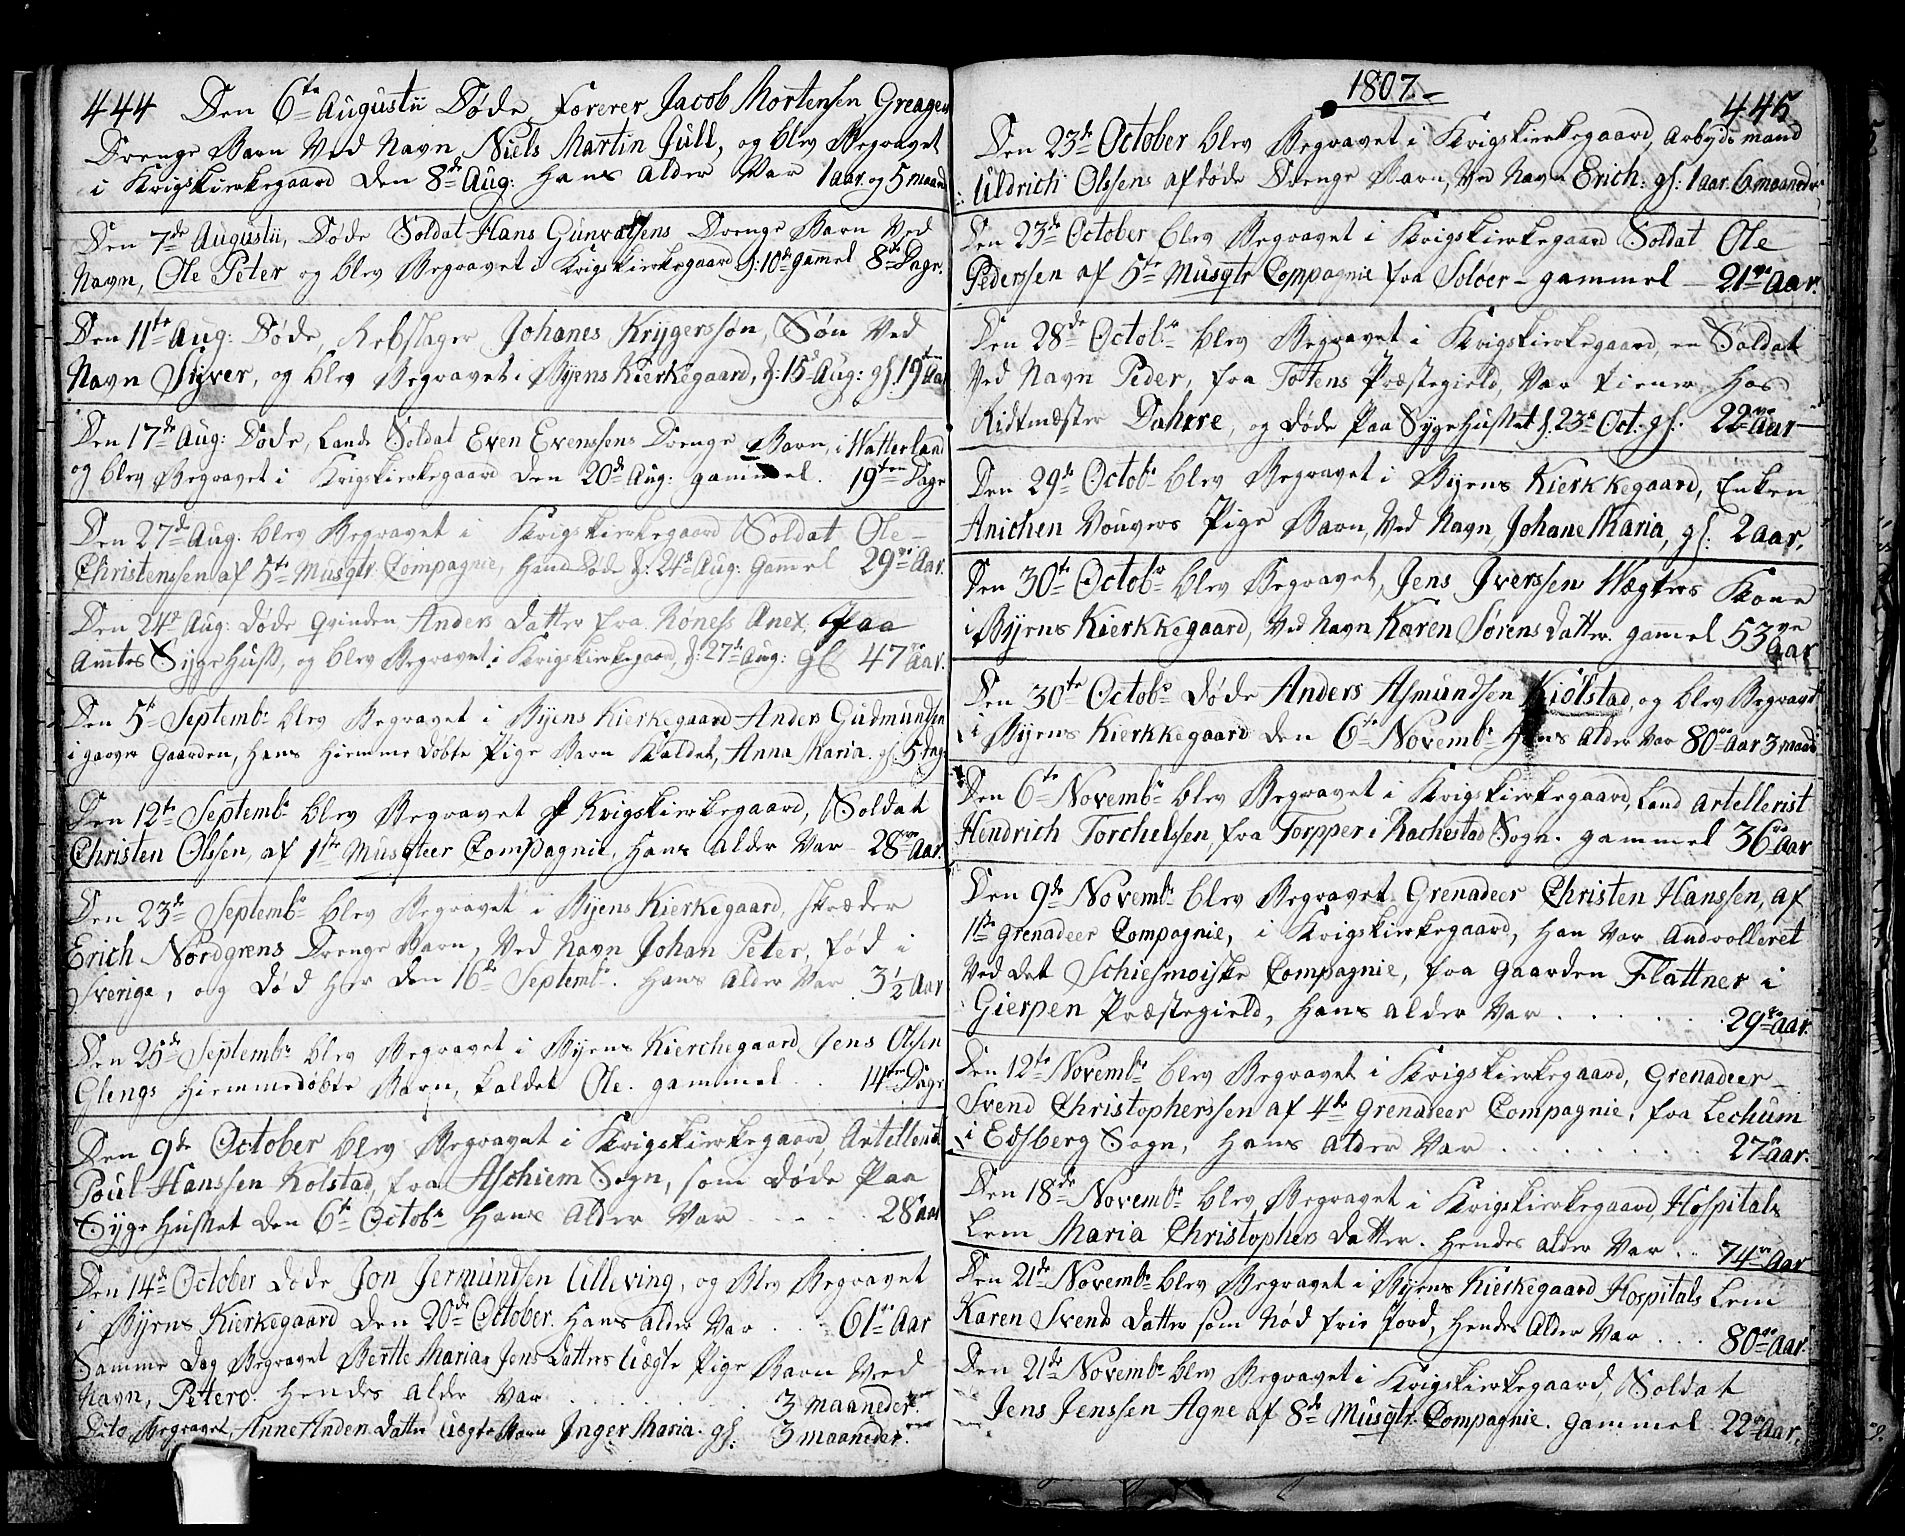 444 Den 6te Augustii Døde, Forerer Jacob Mortensen Greager
Drenge Barn Ved Navn Niels Martin Jull, og blev Begravet
i Krigskierkegaard den 8de Aug: Hans alder Var 1 aar og 5 maan
Den 7de Augustii, Døde Soldat Hans Gunvaldsens Drenge Barn Ved
Navn, Ole Peter og blev Begravet i Krigskierkegaard d: 10de gammel 8te Dage.
Den 11te Aug: Døde, Rebslager Johanes Krygerssøn, Søn Ved
Navn Syver, og blev Begravet i Byens Kierkegaard, d: 15de Aug: gl. 19ten Aar
Den 17de Aug: Døde, Lands Soldat Even Evenssens Drenge Barn, i Watterland
og blev Begravet i Krigskierkegaard den 20de Aug: gammel. 19ten Dage
Den 27de Aug. blev Begravet i Krigskierkegaard Soldat Ole
Christenssen af 5te Musqtr Compagnie, hand Døde d: 24de Aug: Gamel 29ve Aar.
Den 24de Aug: døde Qvinden Anders Datter fra Røness Anex, Paa
Amtes SygeHuss, og blev Begravet i Krigskierkegaard, d: 27de Aug: gl 47ve Aar.
Den 5te Septembr blev Begravet i Byens Kierkegaard Anders Gudmundsen
i garver Gaarden, Hans Hiemme døbte Pige Barn Kaldet, Anna Maria. gl. 5 Dag
Den 12te Septembr blev Begravet i Krigskierkegaard, Soldat
Christen Olssen, af 1ste Musqteer Compagnie, Hans alder Var 28ve Aar.
Den 23de Septembr blev Begravet i Byens Kierkegaard, Skræder
Erich Nordgrens Drenge Barn, Ved Navn Johan Peter, fød i
Sverige, og Død her den 16de Septembr. Hans Alder Var 3 1/2 Aar
Den 25de Septembr blev Begravet i Byens Kierchegaard Jens Olssen
Glengs Hiemmedøbte Barn, kaldet Ole. gammel .. 14ten Dage
Den 9de October blev Begravet i Krigskierkegaard, Artellerist
Poul Hanssen Kolstad, fra Aschiem Sogn, som døde Paa
Syge Husset den 6te Octobr Hans Alder Var .... 28ve Aar
Den 14de October døde Jon Jermundsen Ulleving, og Blev Begravet
i Byens Kierkegaard den 20de October. Hans alder Var .. 61ve Aar
Samme Dag Begravet Berthe Marias Jens Datters Uægte Pige Barn Ved
Navn, Petero. Hendes alder Var ....... 3 maaneder
Dito Begravet, Anne Anden datters Uægte Barn Inger Maria. gl: 3 maaneder.
1807
445
Den 23de October blev Begravet i Krigskierkegaard, Arbyds mand
Uldrich Olssens afdøde Drenge Barn, Ved Navn Erich: gl: 1 aar. 6 maaneder
Den 23de October blev Begravet i Krigskierkegaard Soldat Ole
Pederssen af 5te Musqtr Compagnie fra Soloer - gammel - 21ve Aar.
Den 28de Octobr blev Begravet i Krigskierkegaard, en Soldat
Ved Navn Peder, fra Totens Præstegield, Var tiener Hos
Ridtmæster Dahere, og døde Paa SygeHusset d. 23de Oct. gl. 22ve Aar
Den 29de Octobr blev Begravet i Byens Kierkkegaard, Enken
Anichen Vouvers Pige Barn, Ved Navn Johane Maria, gl: 2 aar.
Den 30te Octobr blev Begravet, Jens Iverssen Wægters Kone
i Byens Kierkkegaard, Ved Navn Karen Sørens datter. gammel 53ve Aar
Den 30te Octobr døde Anders Asmundsen Kiølstad, og blev Begravet
i Byens Kierkkegaard den 6te Novembr Hans Alder Var 80ve Aar 3 maan
Den 6te Novembr blev Begravet i Krigskierkegaard, Land Artellerist
Hendrich Torchelssen, fra Torpper i Rachestad Sogn. gammel 36ve Aar
Den 9de Novembr blev Begravet Grenadeer Christen Hanssen, af
1ste Grenadeer Compagnie, i Krigskierkegaard, Han Var Androlleret
Ved det Schiesmoiske Compagnie, fra Gaarden Flattner i
Gierpen Præstegield, Hans alder Var ...... 29ve Aar.
Den 12te Novembr blev Begravet i Krigskierkegaard, Grenadeer
Svend Christopherssen af 4de Grenadeer Compagnie, fra Lechum
i Edsberg Sogn, Hans Alder Var ....... 27ve Aar.
Den 18de Novembr blev Begravet i Krigskierkegaard, Hospitals
Lem Maria Christophers datter. Hendes alder Var .. 74ve Aar
Den 21de Novembr blev Begravet i Byens Kierkegaard Hospitals Lem
Karen Svend Datter som Nød frie Jord, Hendes Alder Var ... 80ve Aar.
Den 21de Novembr blev Begravet i Krigskierkegaard, Soldat
Jens Jenssen Agne af 8de Musqtr. Compagnie. gammel 22ve Aar.